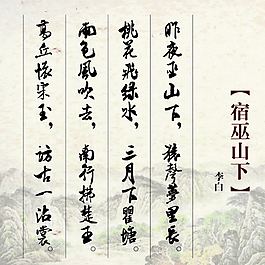 【宿巫山下】
李白
昨夜巫山下，猿聲夢里長。
桃花飛綠水，三月下瞿塘。
雨色風吹去，南行拂楚王。
高丘懷宋玉，訪古一沾裳。